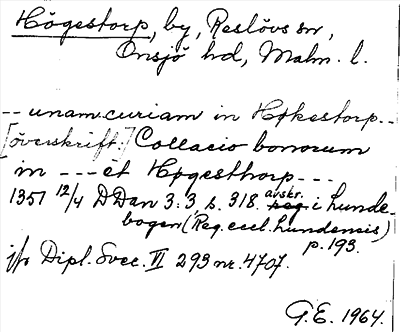 Högestorp, by, Reslövs sn,
Onsjö hd, Malm. l.
-- unam curiam in Høkestorp --
[överskrift:] Collacio bonorum
in --- et Høgesthorp ---
1351 12/4 DDan 3:3 s. 318. avskr. i Lunde-
bogen (Reg. eccl. Lundensis)
p. 193.
jfr Dipl. Svec. VI 293 nr. 4707.
G.E. 1964.